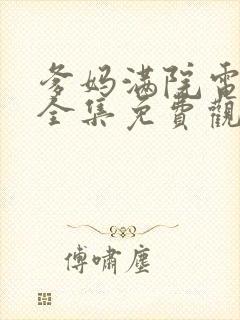 爹妈满院電
全集免費觀
傅嘯塵